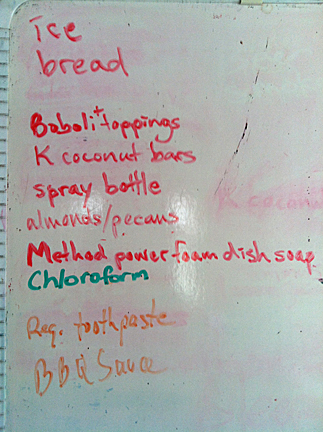 ice
bread
Baboli + toppings
K coconut bars
spray bottle
almonds/pecans
Method power foam dish soap
Chloroform
Reg. toothpaste
BBQ Sauce
K coconu